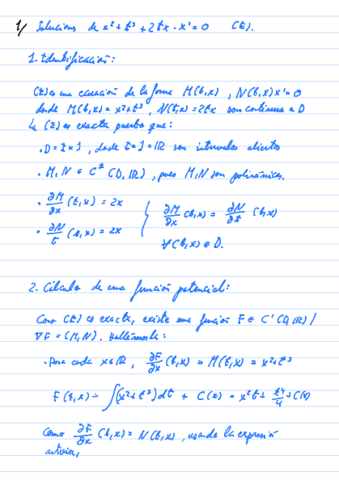 1/ Soluciones de x² + t³ + 2tx · x' = 0 (E).
1. Identificación:
(E) es una ecuación de la forma M(t,x) + N(t,x)x' = 0
donde M(t,x) = x² + t³, N(t,x) = 2tx son continuas en D
La (E) es exacta puesto que:
· D = I × J, donde I = J = ℝ son intervalos abiertos
· M, N ∈ C¹(D, ℝ), pues M, N son polinómicas.
· ∂M/∂x (t,x) = 2x
· ∂N/t (t,x) = 2x
∂M/∂x (t,x) = ∂N/∂t (t,x)
∀(t,x) ∈ D.
2. Cálculo de una función potencial:
Como (E) es exacta, existe una función F ∈ C¹(D, ℝ) /
∇F = (M, N). Hallémosla:
· Para cada x ∈ ℝ, ∂F/∂x (t,x) = M(t,x) = x² + t³
F(t,x) = ∫(x² + t³)dt + C(x) = x²t + t⁴/4 + C(x)
Como ∂F/∂x (t,x) = N(t,x), usando la expresión
anterior,